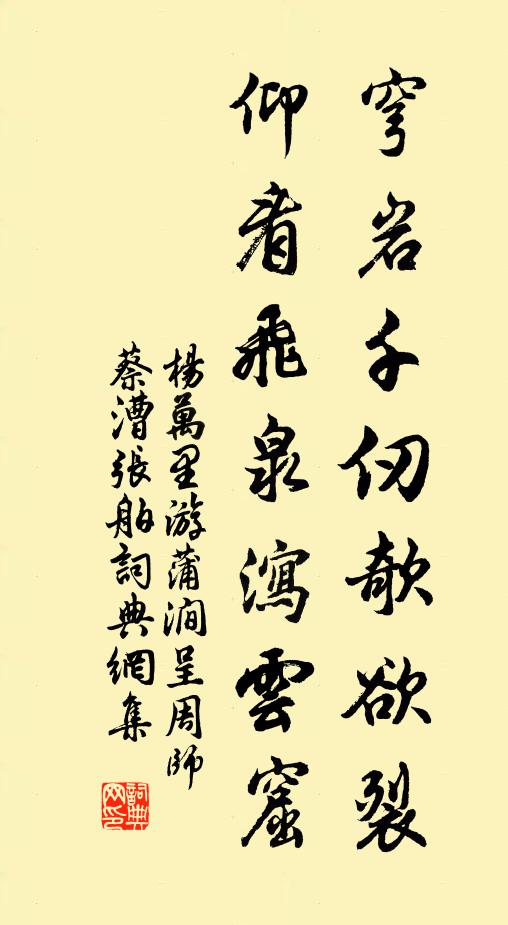 穹岩千仞欹欲裂
仰看飛泉瀉雲窟
楊萬里游蒲澗呈周師
蔡漕張舶詞典網集
詞典
网印